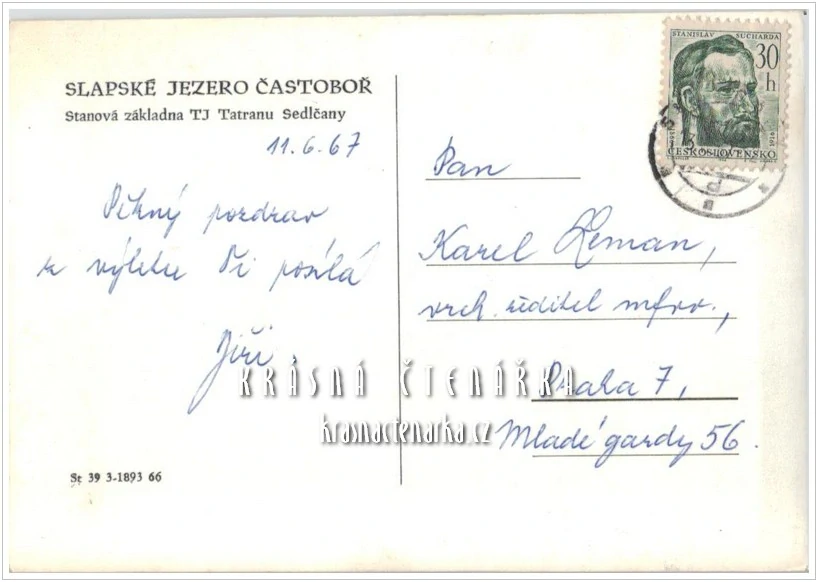 SLAPSKÉ JEZERO ČASTOBOŘ
Stanová základna TJ Tatranu Sedlčany
11.6.67
Pěkný pozdrav
z výletu Ti posílá
Jiří.
St 39 3-1893 66
STANISLAV SUCHARDA
30
h
1916
ČESKOSLOVENSKO
Pan
Karel Leman,
vrch. ředitel
Praha 7,
Mladé gardy 56.
KRÁSNÁ ČTENÁŘKA
krasnactenarka.cz